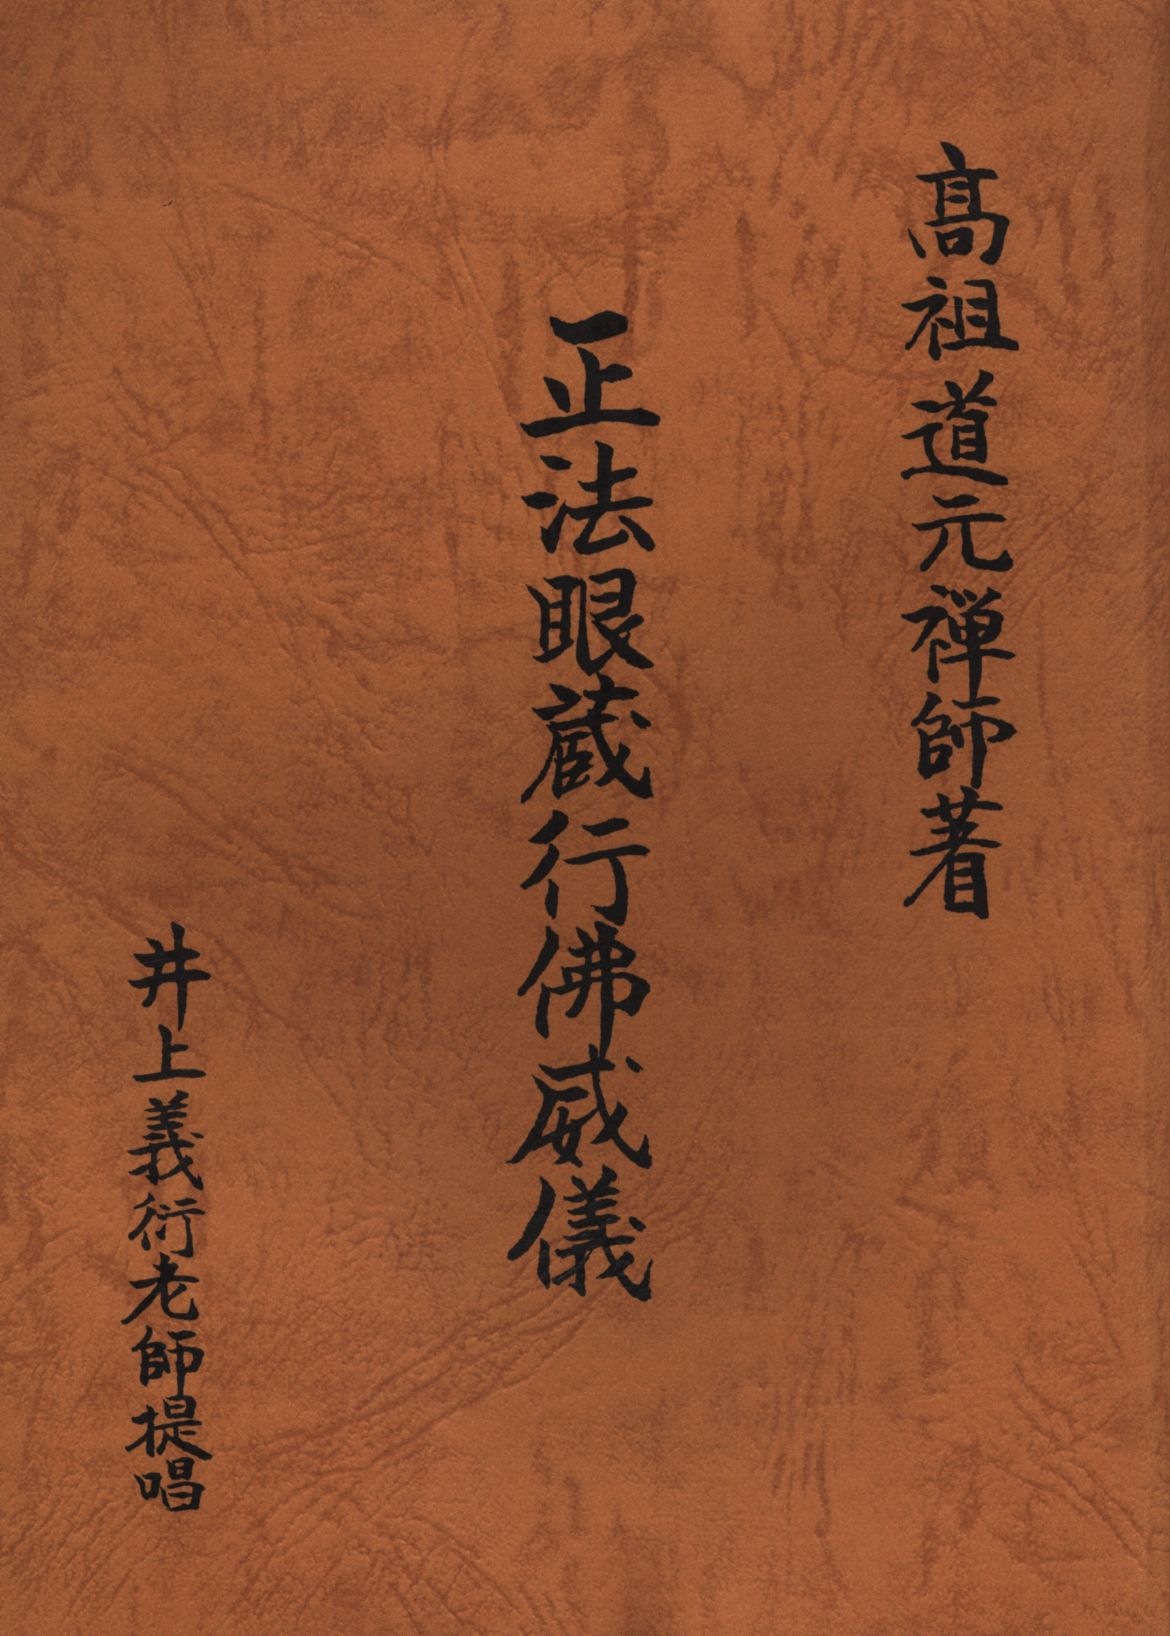 髙祖道元禅師著
正法眼蔵行佛威儀
井上義衍老師提唱